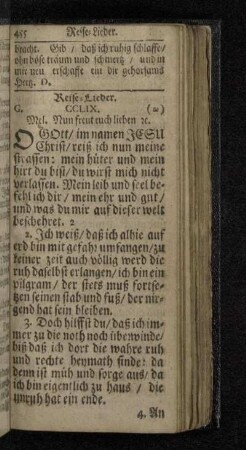 455 Reise-Lieder.
bracht. Gib / daß ich ruhig schlaffe/
ohn böse träum und schmertz / und in
mir neu erschaffe ein dir gehorsams
Hertz. O.
Reise-Lieder.
G. CCLIX. (2)
Mel. Nun freut euch lieben ꝛc.
O GOtt / im namen JESU
Christ / reiß ich nun meine
strassen: mein hüter und mein
hirt du bist / du wirst mich nicht
verlassen. Mein leib und seel be-
fehl ich dir / mein ehr und gut /
und was du mir auf dieser welt
beschehret. 2
2. Ich weiß / daß ich alhie auf
erd bin mit gefahr umfangen / zu
keiner zeit auch völlig werd die
ruh daselbst erlangen / ich bin ein
pilgram / der stets muß fortse-
tzen seinen stab und fuß / der nir-
gend hat sein bleiben.
3. Doch hilffst du / daß ich im-
mer zu die noth noch überwinde/
biß daß ich dort die wahre ruh
und rechte heymath finde: da
denn ist müh und sorge aus / da
ich bin eigentlich zu haus / die
unruh hat ein ende.
4. An